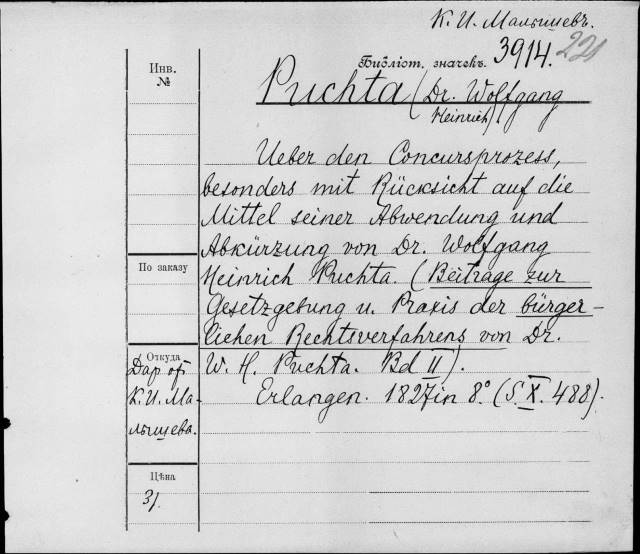 К. И. Малышевъ.
Библіот. значекъ. 3914. 221
Инв.
№
Puchta (Dr. Wolfgang
Heinrich)
Ueber den Concursprozess,
besonders mit Rücksicht auf die
Mittel seiner Abwendung und
Abkürzung von Dr. Wolfgang
Heinrich Puchta. (Beitrage zur
Gesetzgebung u. Praxis der bürger-
lichen Rechtsverfahrens von Dr.
W. H. Puchta. Bd II).
Erlangen. 1827 in 8° (S. X. 488).
По заказу
Откуда
Дар от
К. И. Ма-
лышева.
Цѣна
3).